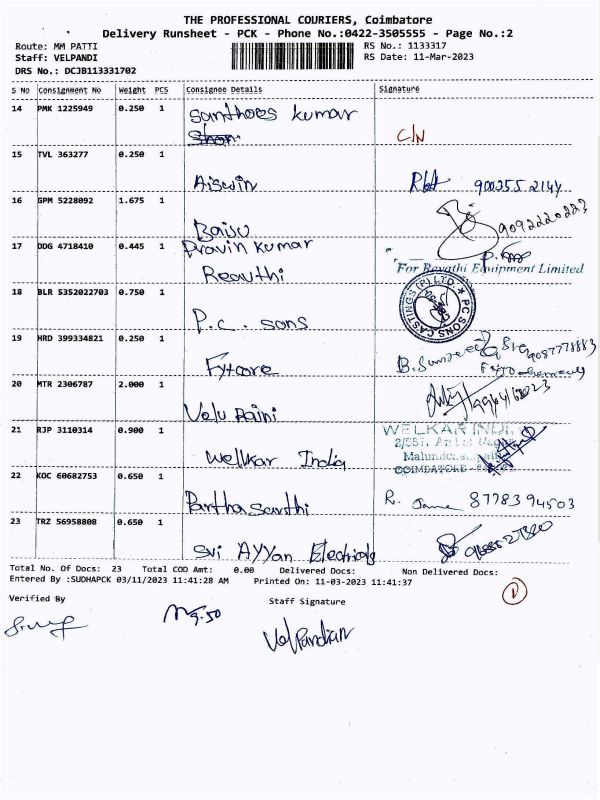 THE PROFESSIONAL COURIERS, Coimbatore
Delivery Runsheet - PCK - Phone No.:0422-3505555 - Page No.:2
Route: MM PATTI RS No.: 1133317
Staff: VELPANDI RS Date: 11-Mar-2023
DRS No.: DCJB113331702
S No Consignment No Weight PCS Consignee Details Signature
14 PMK 1225949 0.250 1 Santhoes kumar
C/N
15 TVL 363277 0.250 1
Aiswin
16 GPM 5228092 1.675 1
Baiju 9092220223
17 DDG 4718410 0.445 1 Pravin kumar
Revathi For Revathi Equipment Limited
18 BLR 5352022703 0.750 1
P.C. sons PC SONS CASTINGS (P) LTD.
19 HRD 399334821 0.250 1
Fytcore
20 MTR 2306787 2.000 1
Velu Paini
21 RJP 3110314 0.900 1 WELKAR INDI
Welkar India COIMBATORE
22 KOC 60682753 0.650 1
Partha Sarithi R. 8778394503
23 TRZ 56958808 0.650 1
Sri AYYan Electricals
Total No. Of Docs: 23 Total COD Amt: 0.00 Delivered Docs: Non Delivered Docs:
Entered By :SUDHAPCK 03/11/2023 11:41:28 AM Printed On: 11-03-2023 11:41:37
Verified By Staff Signature
9.50
VelPandian